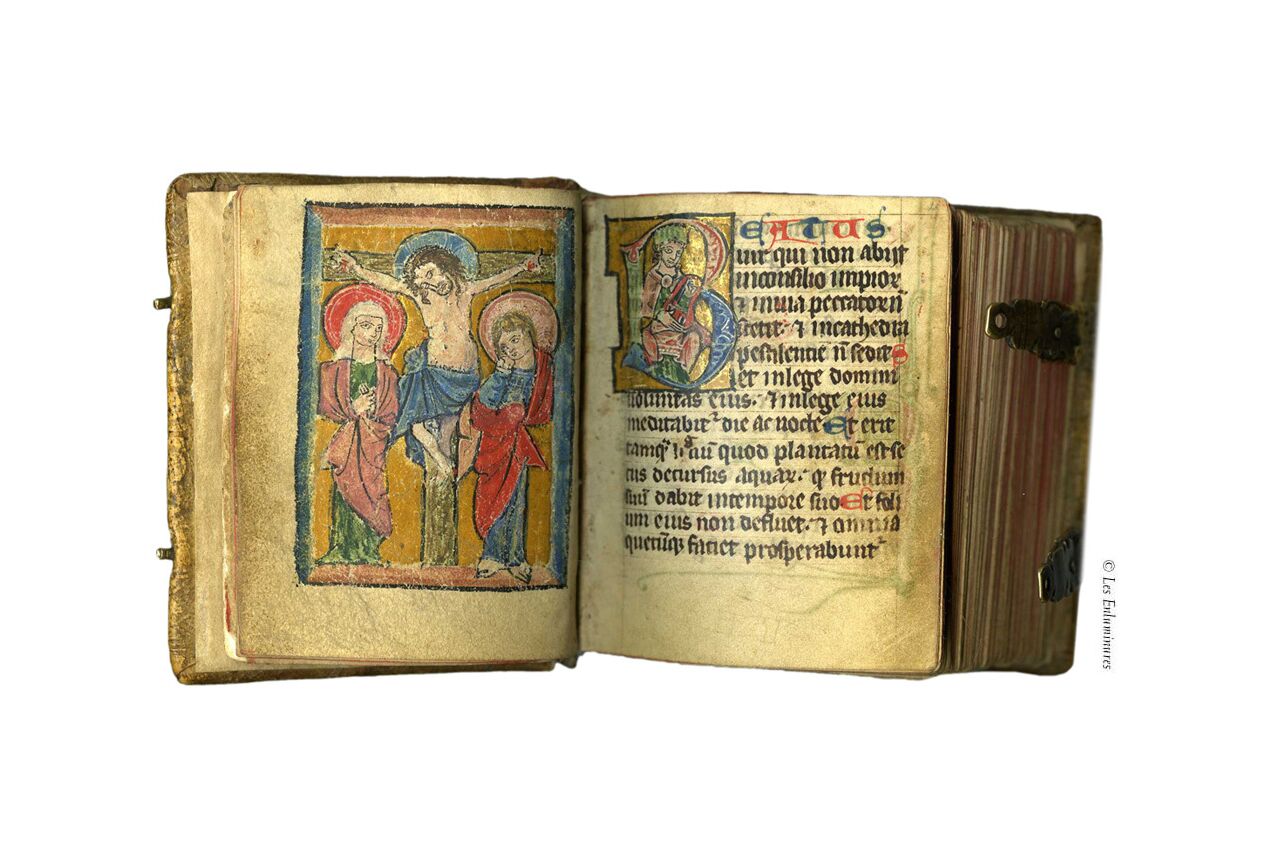 BEATUS
uir qui non abijt
in consilio impior
⁊ in uia peccatorū
stetit. ⁊ in cathedra
pestilentie n̄ sedit
Set in lege domini
uoluntas eius. ⁊ in lege eius
meditabit᷑ die ac nocte Et erit
tamq̄ lignū quod plantatū est se
cus decursus aquar. qͥ fructum
suū dabit in tempore suo Et foli
um eius non defluet. ⁊ omnia
quecūq; faciet prosperabunt᷑
© Les Enluminures